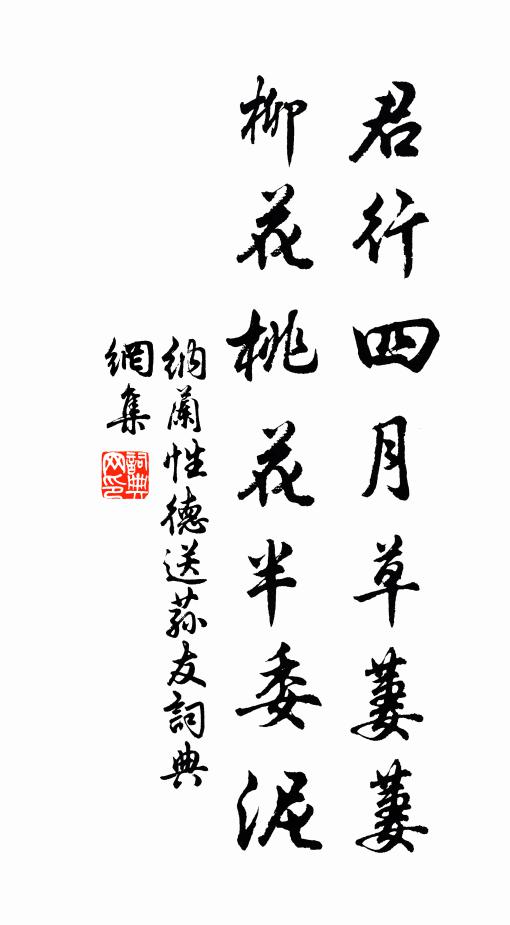 君行四月草萋萋
柳花桃花半委泥
納蘭性德送蓀友詞典
網集
詞典網印